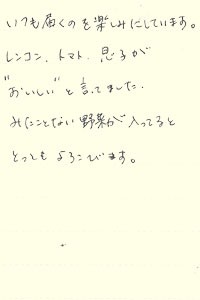 いつも届くのを楽しみにしています。
レンコン、トマト、息子が
"おいしい"と言ってました。
みたことない野菜が入ってると
とってもよろこびます。